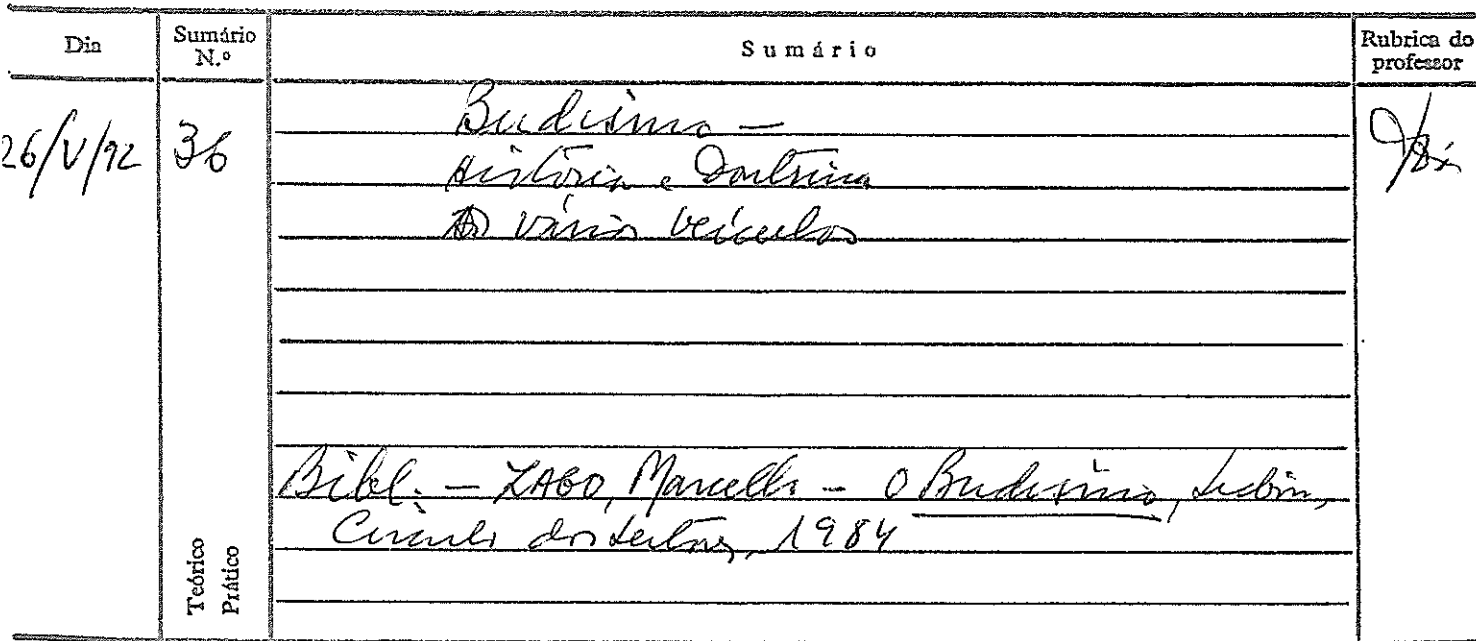 Dia
Sumário N.º
Sumário
Rubrica do professor
26/V/92
36
Budismo —
História e Doutrina
Os vários veículos
Bibl. — ZAGO, Marcello — O Budismo, Lisboa,
Círculo dos Leitores, 1984
Teórico
Prático